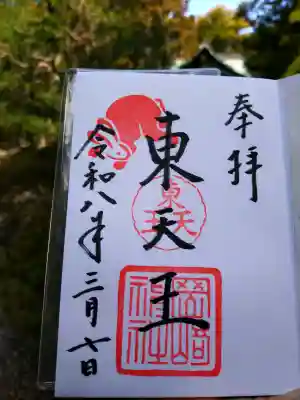 奉拝
東天王
東天王
令和八年三月七日